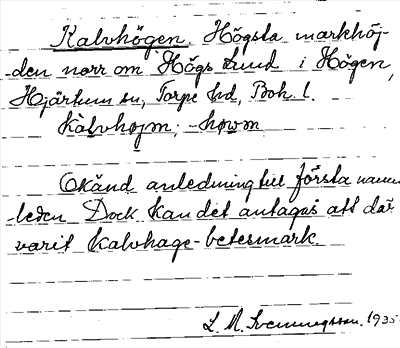 Kalvhögen. Högsta markhöj-
den norr om Högs lund i Högen,
Hjärtum sn, Torpe hd, Boh. l.
kàlvhojm; -howm
Okänd anledning till första namn-
leden. Dock kan det antagas att där
varit kalvhage-betesmark.
L. M. Svenungsson. 1935